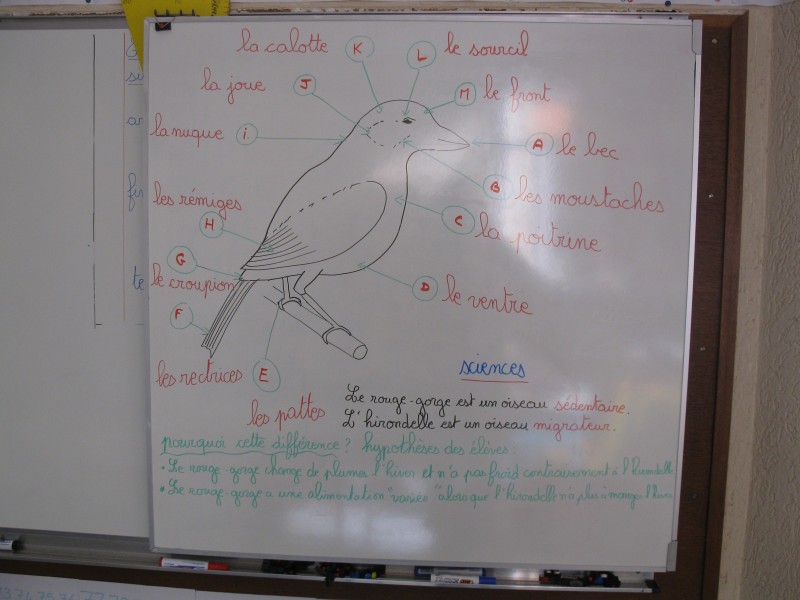 la calotte K L le sourcil
la joue J M le front
la nuque i A le bec
B les moustaches
les rémiges H C la poitrine
G le croupion D le ventre
F
les rectrices E
les pattes
sciences
Le rouge-gorge est un oiseau sédentaire.
L'hirondelle est un oiseau migrateur.
pourquoi cette différence? hypothèses des élèves:
• Le rouge-gorge change de plumes l'hiver et n'a pas froid contrairement à l'hirondelle
• Le rouge-gorge a une alimentation "variée" alors que l'hirondelle n'a plus à manger l'hiver